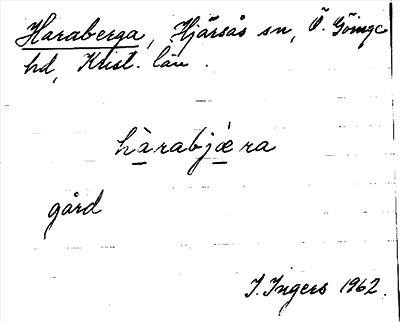 Haraberga, Hjärsås sn, Ö. Göinge
hd, Krist. län.
hàrabjǽra
gård
I. Ingers 1962.